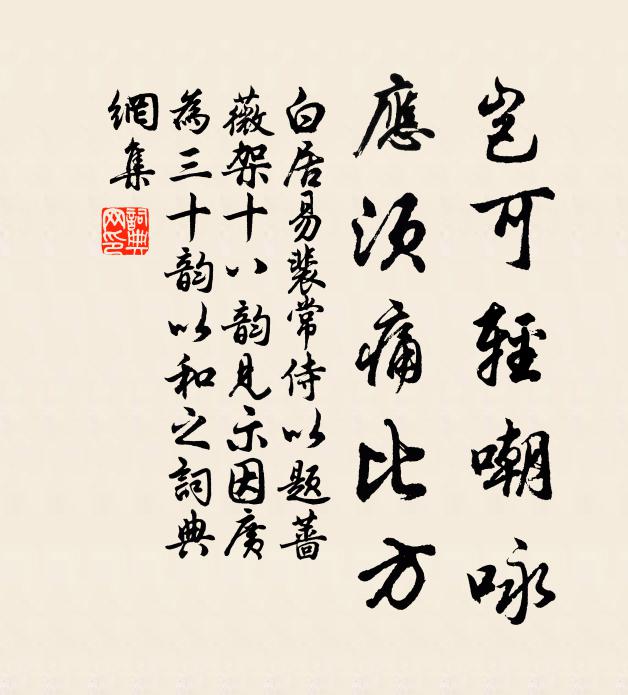 豈可輕嘲咏
應須痛比方
白居易裴常侍以题薔
薇架十八韵見示因廣
為三十韵以和之詞典
網集
詞典网印